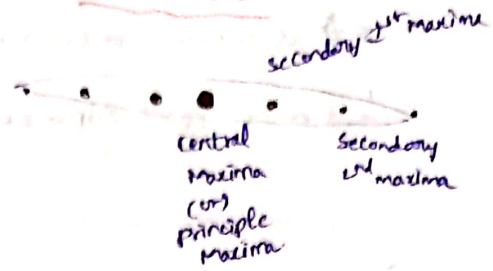 secondary 1st maxima
central
maxima
(or)
principle
maxima
secondary
2nd maxima